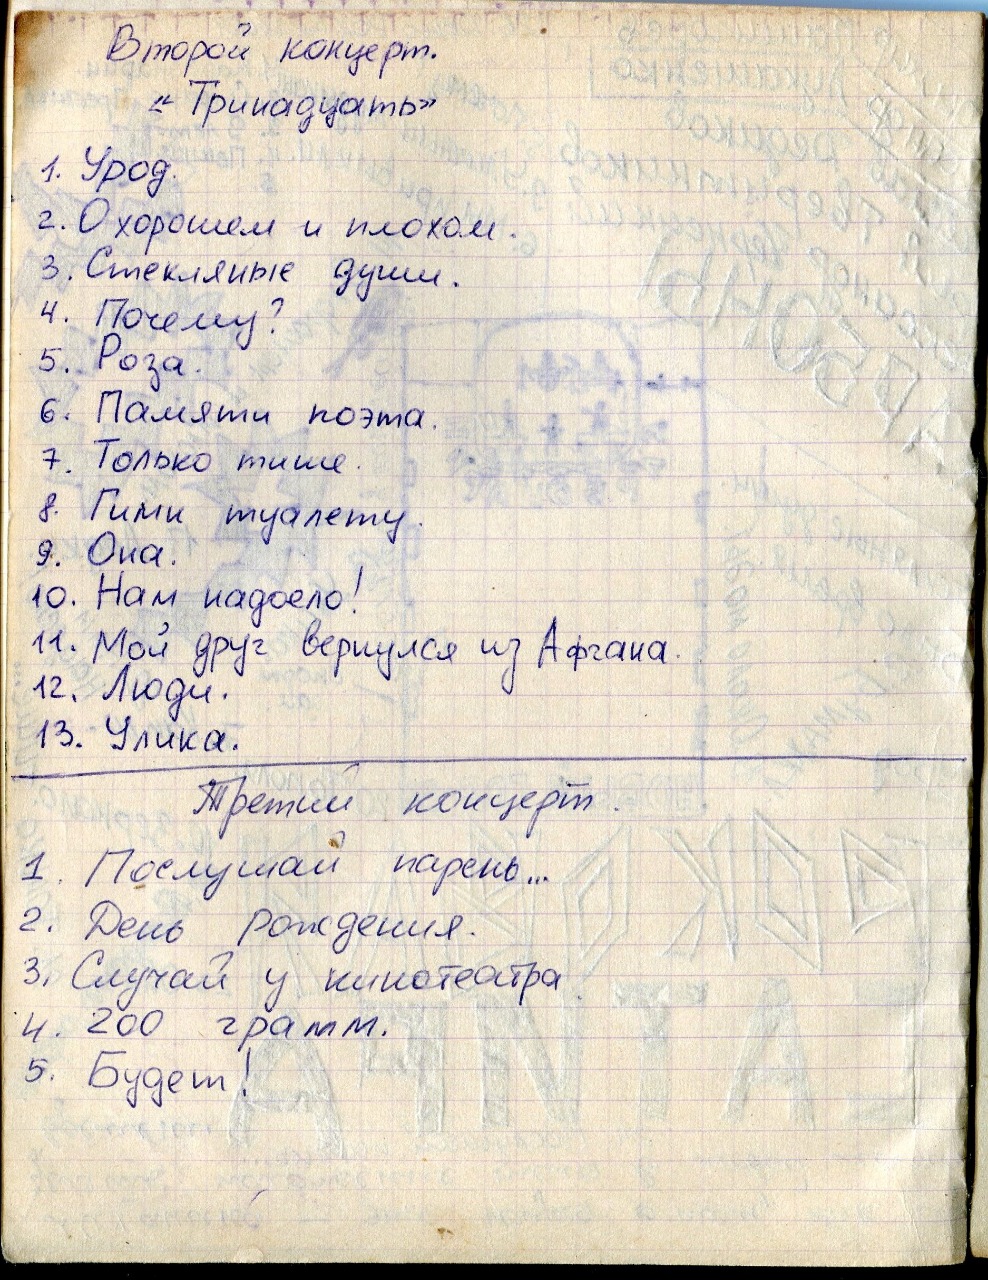 Второй концерт.
« Тринадцать»
1. Урод.
2. О хорошем и плохом.
3. Стекляные души.
4. Почему?
5. Роза.
6. Памяти поэта.
7. Только тише.
8. Гимн туалету.
9. Она.
10. Нам надоело!
11. Мой друг вернулся из Афгана.
12. Люди.
13. Улика.
Третий концерт.
1. Послушай парень...
2. День рождения.
3. Случай у кинотеатра
4. 200 грамм.
5. Будет!